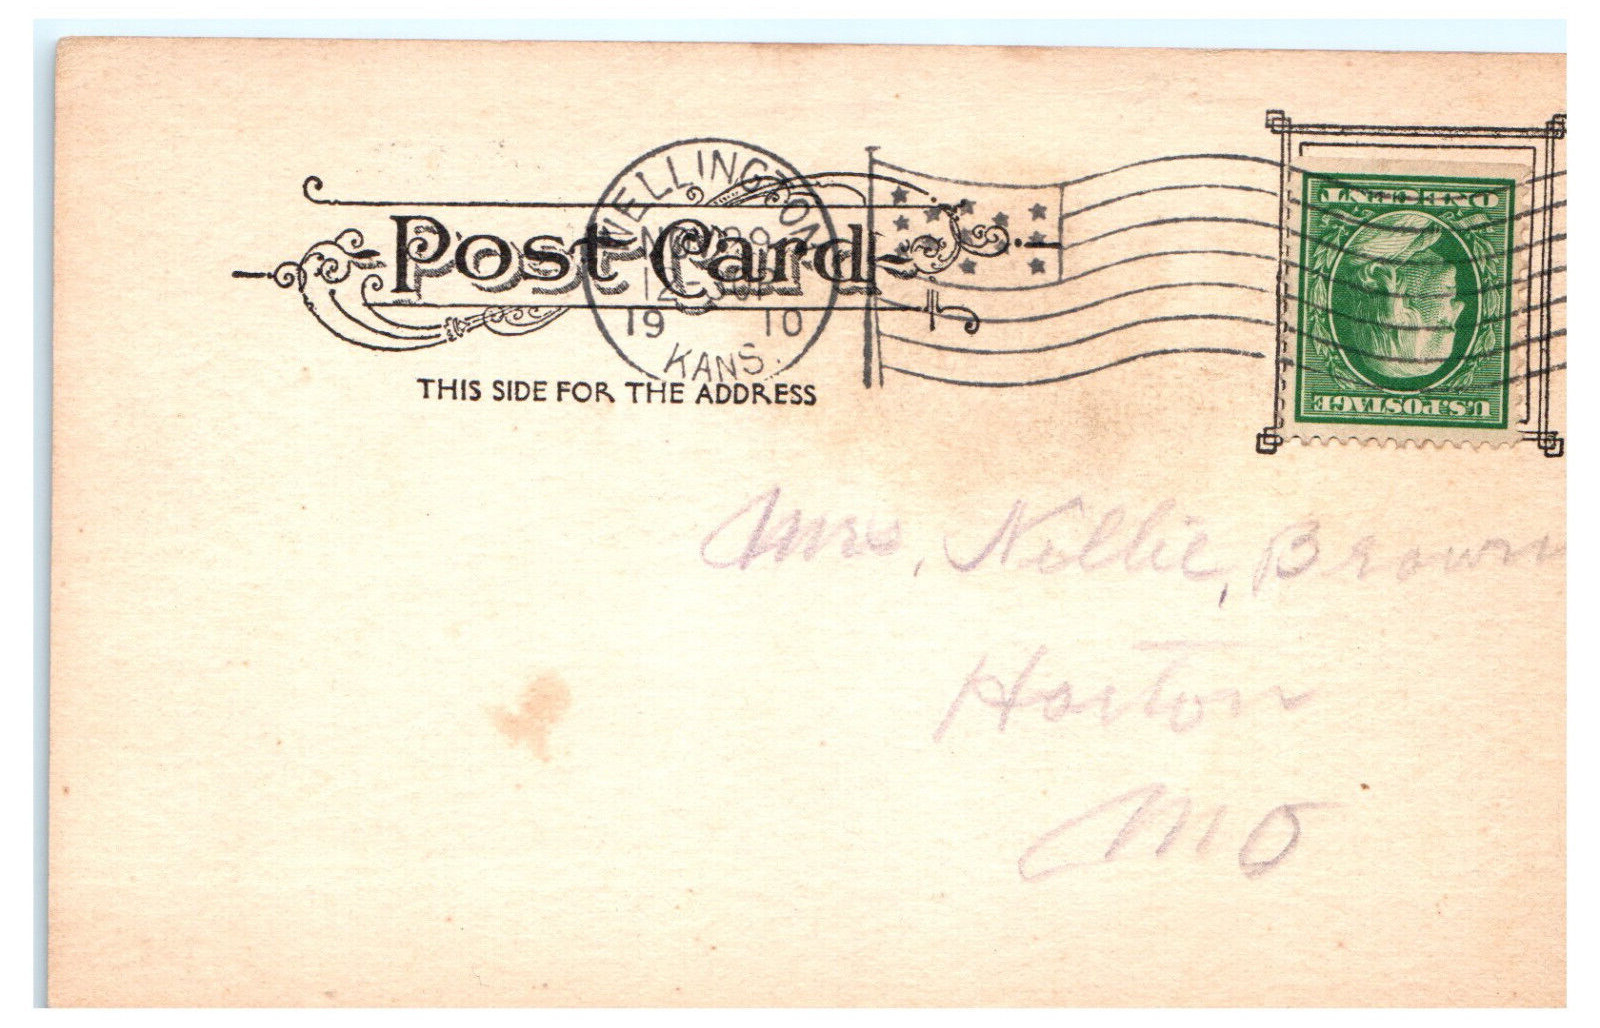 WELLINGTON
19 10
KANS.
Post Card
THIS SIDE FOR THE ADDRESS
U.S.POSTAGE
ONE CENT
Mrs, Nellie, Brown
Horton
MO